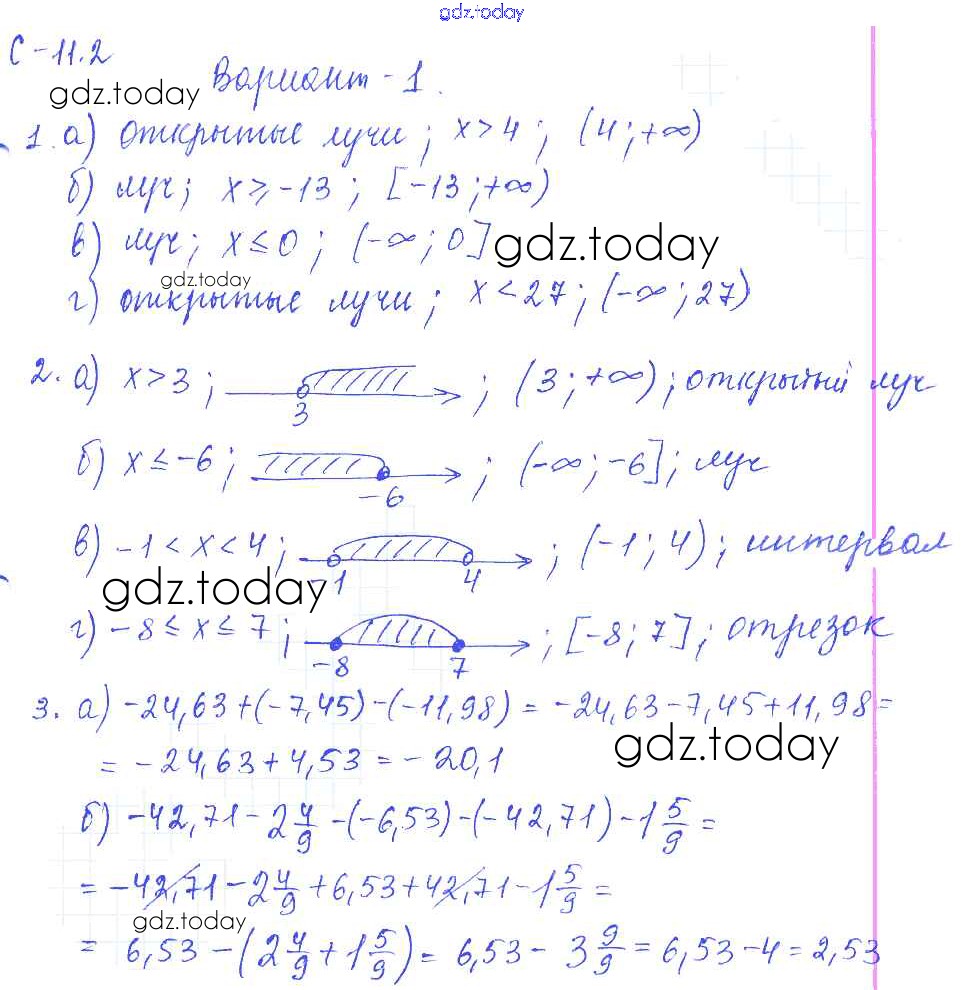 gdz.today
С-11.2
gdz.today
Вариант-1.
1. а) открытые лучи; x>4; (4;+∞)
б) луч; x≥-13; [-13;+∞)
в) луч; x≤0; (-∞;0] gdz.today
gdz.today
г) открытые лучи; x<27; (-∞;27)
2. а) x>3; 3; (3;+∞); открытый луч
б) x≤-6; -6; (-∞;-6]; луч
в) -1<x<4; -1 4; (-1;4); интервал
gdz.today
г) -8≤x≤7; -8 7; [-8;7]; отрезок
3. а) -24,63+(-7,45)-(-11,98)=-24,63-7,45+11,98=
gdz.today
=-24,63+4,53=-20,1
б) -42,71-2 4/9-(-6,53)-(-42,71)-1 5/9=
=-42,71-2 4/9+6,53+42,71-1 5/9=
gdz.today
=6,53-(2 4/9+1 5/9)=6,53-3 9/9=6,53-4=2,53